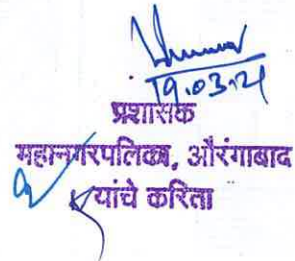 19.03.21
प्रशासक
महानगरपलिका, औरंगाबाद
यांचे करिता